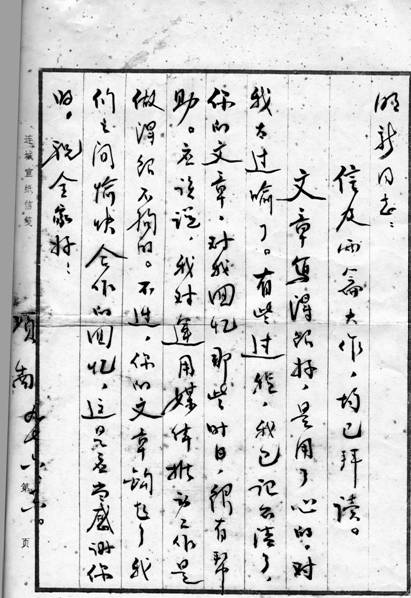 同志：
信及两篇大作，均已拜读。
文章写得很好，是用了心的，对
我太过喻了。有些过程，我已记不清了，
你的文章，对我回忆那些时日，很有帮
助。应该说，我对运用媒体推动工作是
做得很不够的。不过，你的文章钩起了我
们之间愉快合作的回忆，这是应当感谢你
的。祝全家好！
项南 六
连城宣纸信笺
第 页